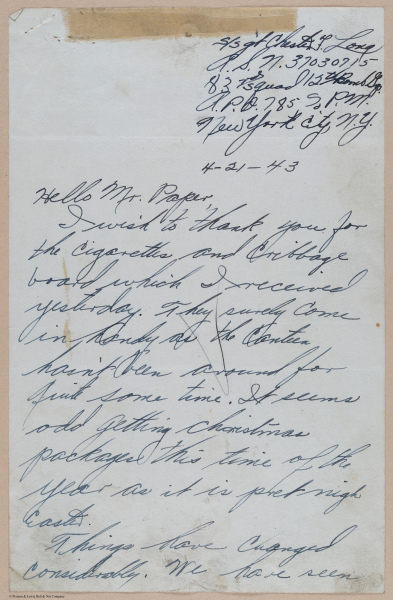 S/Sgt Chester F Long
A.S.N. 37030715
83rd Squad 12th Bomb Gp.
A.P.O. 785 % P.M.
New York City, N.Y.
4-21-43
Hello Mr. Paper,
I wish to thank you for
the cigaretts and Cribbage
board which I received
yesterday. They surely come
in handy as the Canteen
hasn't been around for
quite some time. It seems
odd getting Christmas
packages this time of the
year as it is pret nigh
Easter.
Things have changed
considerably. We have seen